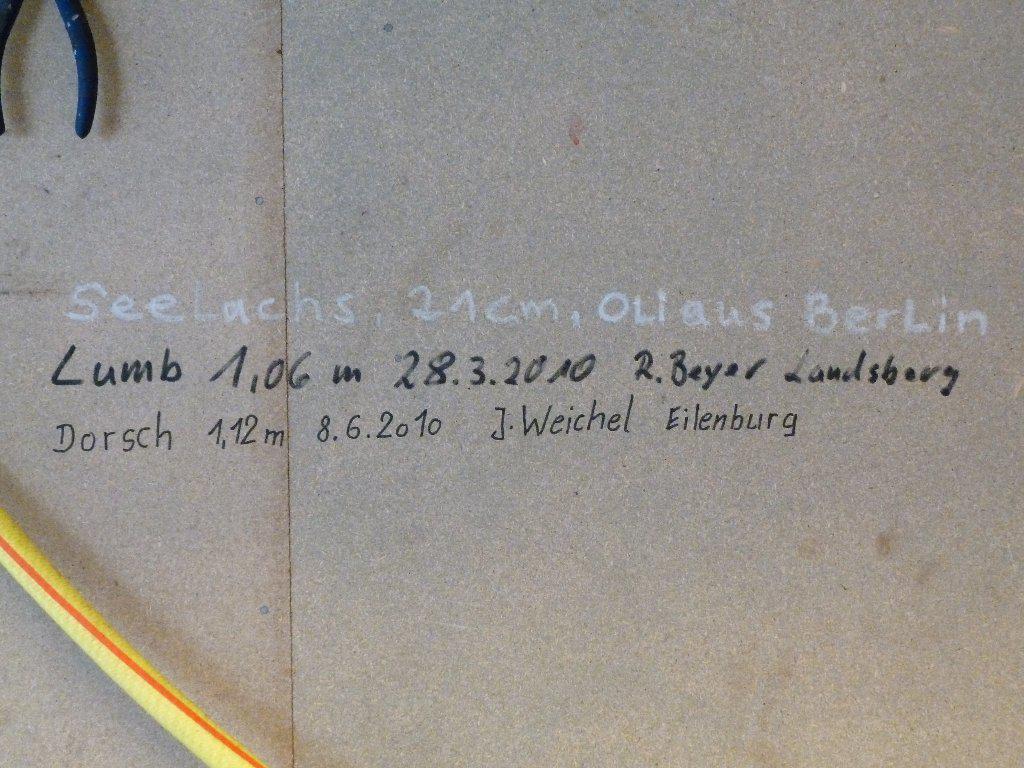 Seelachs, 21cm, OLi aus BerLin
Lumb 1,06 m 28.3.2010 R. Beyer Landsberg
Dorsch 1,12m 8.6.2010 J. Weichel Eilenburg